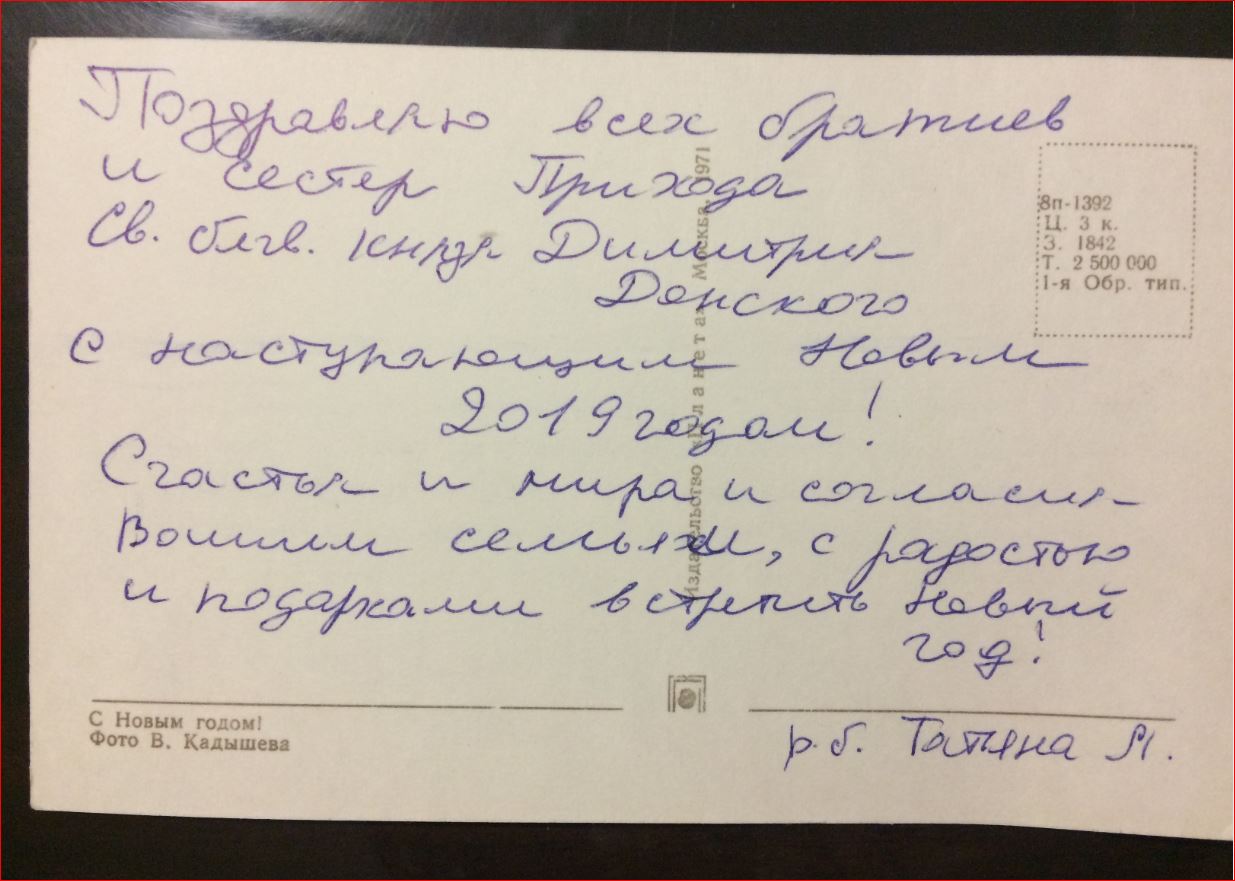 Поздравляю всех братиев
и сестер Прихода
Св. блгв. князя Димитрия
Донского
с наступающим Новым
2019 годом!
Счастья и мира и согласия
Вашим семьям, с радостью
и подарками встретить Новый
год!
р.б. Татяна М.
8п-1392
Ц. 3 к.
З. 1842
Т. 2 500 000
1-я Обр. тип.
Издательство «Планета» Москва, 1971
С Новым годом!
Фото В. Кадышева